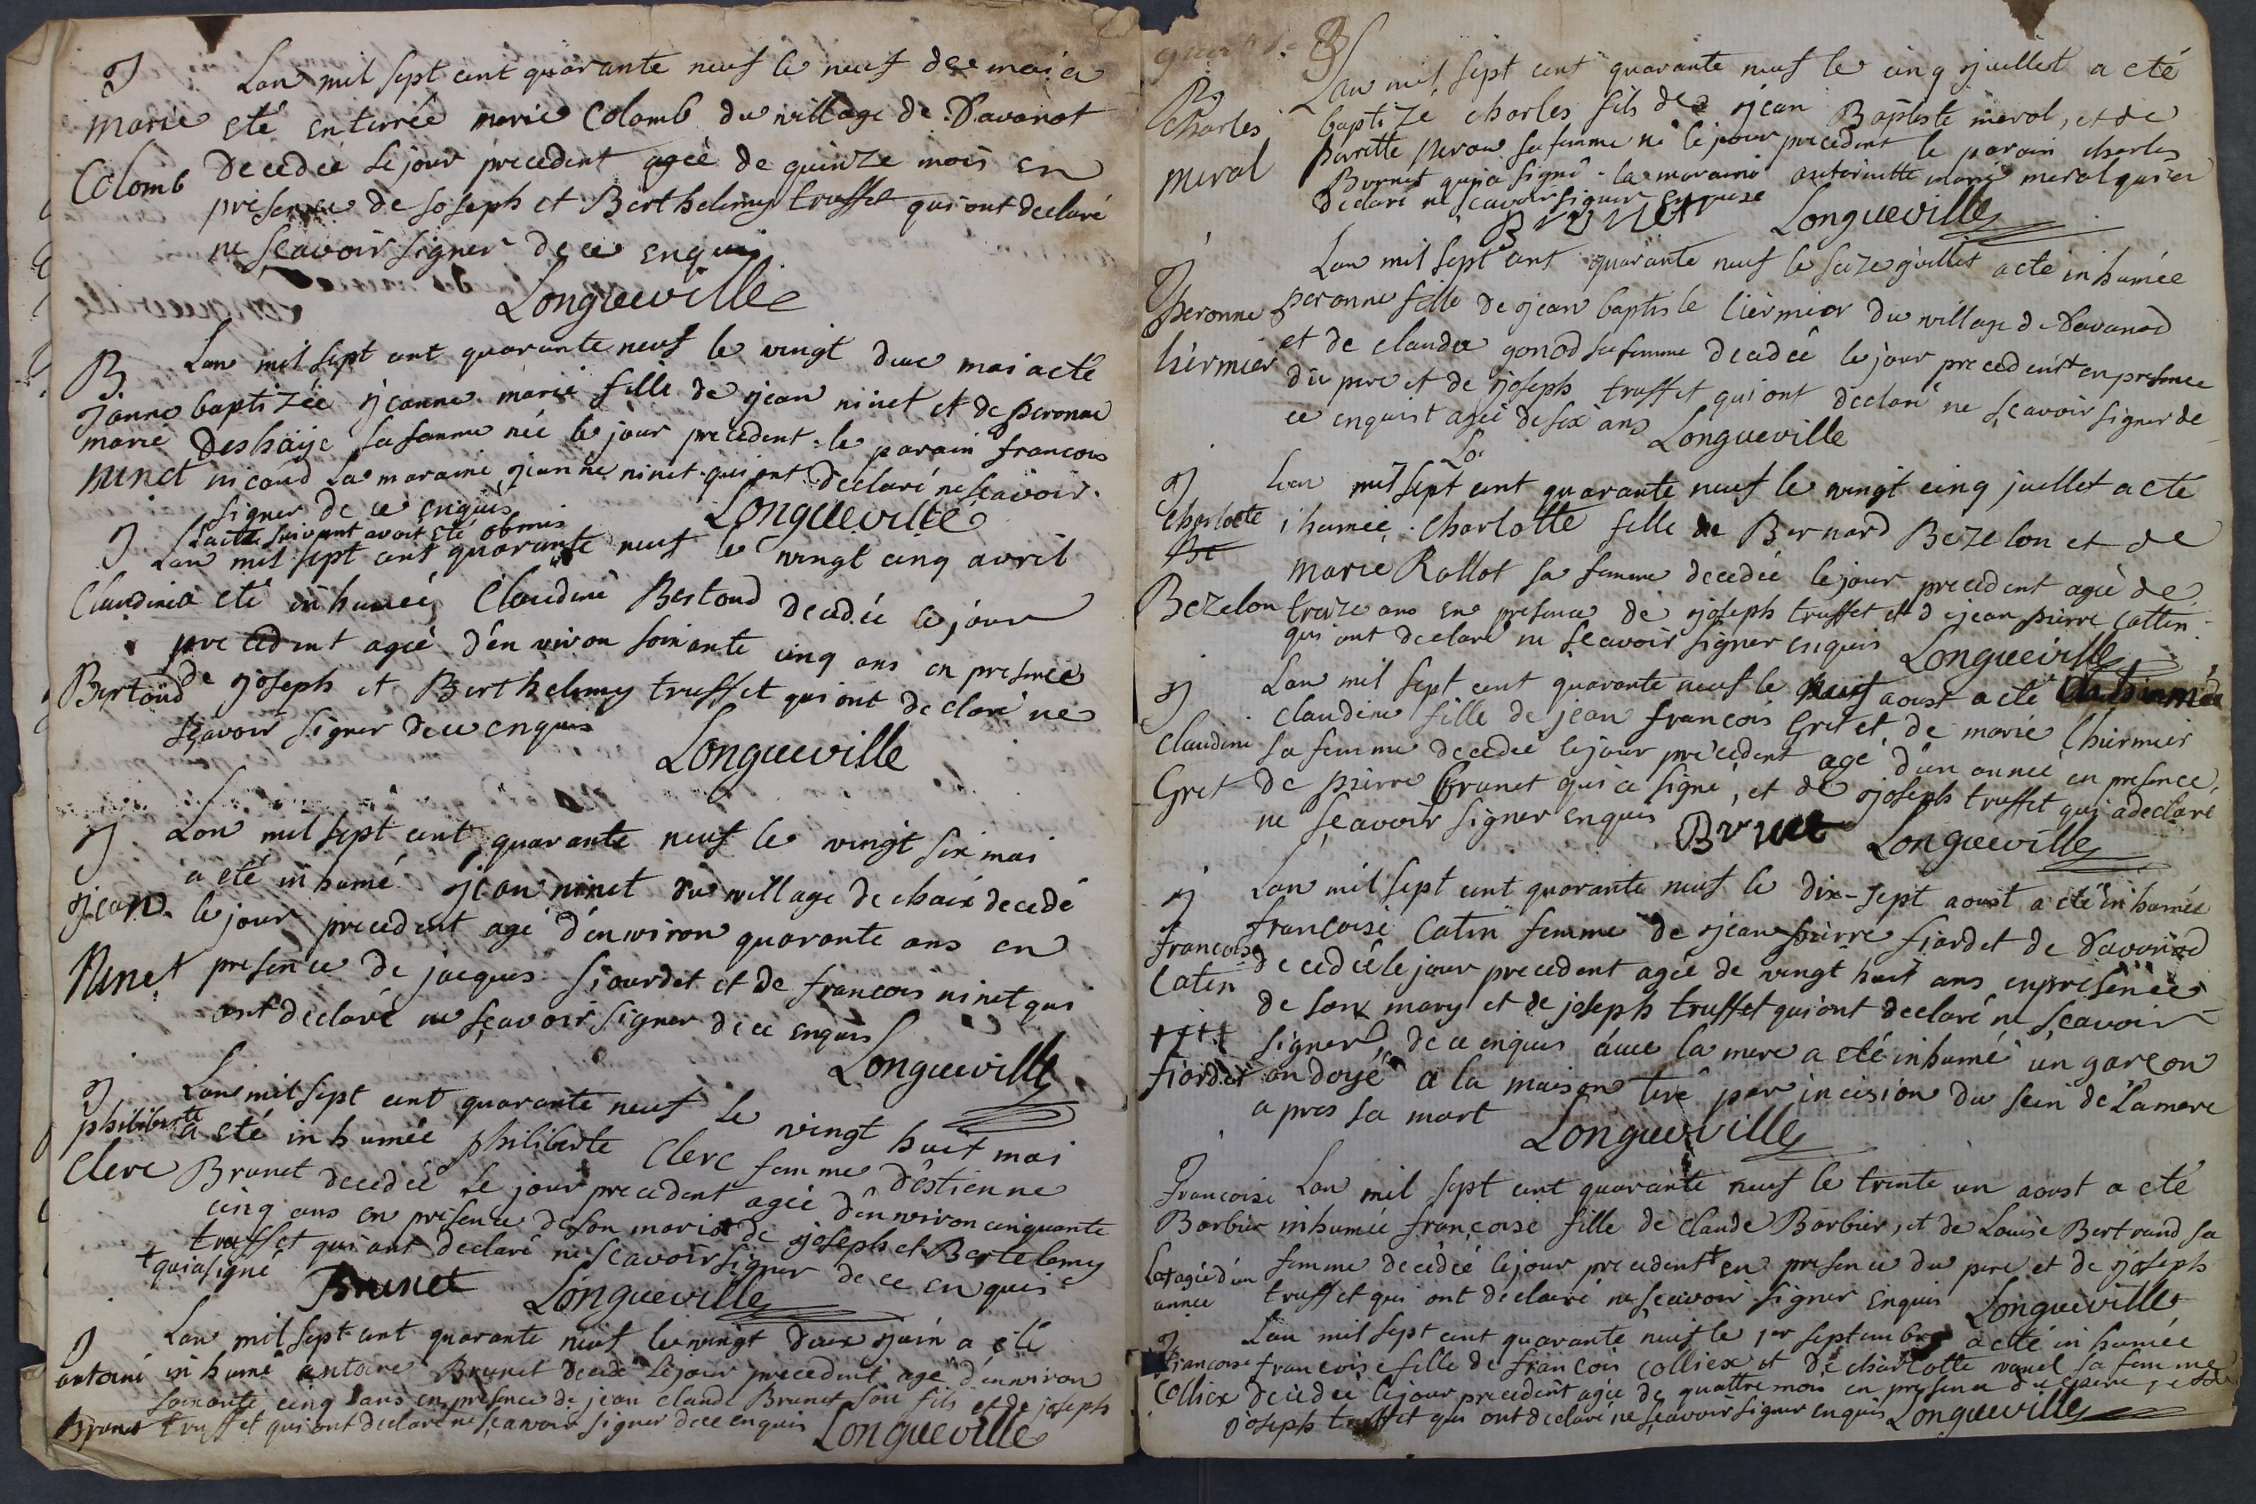 J Lan mil sept cent quarante neuf le neuf de mai a
Marie eté enterrée marie Colomb du village de Davanot
Colomb decedeé le jour precedent ageè de quinze mois en
presence de joseph et Berthelemy truffet qui ont declaré
ne sçavoir signer de ce enquis
Longueville
B Lan mil sept cent quarante neuf le vingt deux mai a eté
Janne baptizée jeanne marie fille de jean ninet et de peronne
marie Deshaÿe sa famme neé le jour precedent le parain francois
ninet nicoud la maraine jeanne ninet qui ont declaré ne sçavoir
signer de ce enquis Longueville
L'acte suivant avoit eté obmis
J Lan mil sept cent quarante neuf le vingt cinq avril
Claudine a eté inhumeé Claudine Bertoud decedée le jour
precedent ageè d'environ soixante cinq ans en presence
Bertoud de joseph et Berthelemy truffet qui ont declaré ne
sçavoir signer de ce enquis
Longueville
J Lan mil sept cent quarante neuf le vingt six mai
a eté inhumé jean ninet du village de chaix decedé
jean le jour precedent agé d'environ quarante ans en
Ninet presence de jacques fiourdet et de francois ninet qui
ont declaré ne sçavoir signer de ce enquis
Longueville
J Lan mil sept cent quarante neuf le vingt huit mai
philiberte a eté inhumée philiberte Clerc femme d'estienne
Clerc Brunet decedeé le jour precedent ageè d'environ cinquante
cinq ans en presence de son mari + et de joseph et Bertelemy
truffet qui ont declaré ne sçavoir signer de ce enquis
+ qui a signé Brunet Longueville
J Lan mil sept cent quarante neuf le vingt deux juin a eté
antoine inhumé antoine Brunet decedé le jour precedent agé d'environ
soixante cinq ans en presence de jean claude Brunet son fils et de joseph
Brunet truffet qui ont declaré ne sçavoir signer de ce enquis Longueville
Lan mil sept cent quarante neuf le cinq juillet a eté
B Charles baptizé charles fils de jean Baptiste meral, et de
Meral perrette peron sa femme né le jour precedent le parain charles
Burnet qui a signé la maraine antoinette marie meral qui a
declaré ne sçavoir signer enquise
Brunet Longueville
J Lan mil sept cent quarante neuf le seize juillet a eté inhumée
peronne peronne fille de jean baptiste liermier du village de Davanod
liermier et de clauda gonod sa femme decedeé le jour precedent en presence
du pere et de joseph truffet qui ont declaré ne sçavoir signer de
ce enquis ageé de six ans Longueville
J Lan mil sept cent quarante neuf le vingt cinq juillet a eté
Charlotte ihumeé Charlotte fille de Bernard Bezelon et de
Marie Rallot sa femme decedeé le jour precedent ageè de
Bezelon traize ans en presence de joseph truffet et de jean pierre cattin
qui ont declaré ne sçavoir signer enquis Longueville
J Lan mil sept cent quarante neuf le aoust a eté inhumée
Claudine claudine fille de jean françois Gret et de marie l'hiermier
sa femme decedeé le jour precedent agé d'un anneé en presence
Gret de pierre Brunet qui a signé, et de joseph truffet qui a declaré
ne sçavoir signer enquis Brunet Longueville
J Lan mil sept cent quarante neuf le dix-sept aoust a eté inhumée
francoise françoise Catin femme de jean pierre fiardet de Davanod
Catin decedeé le jour precedent ageé de vingt huit ans en presence
de son mary et de joseph truffet qui ont declaré ne sçavoir
signer de ce enquis avec la mere a eté inhumé un garçon
fiordet ondoyé a la maison tiré par incision du sein de la mere
apres sa mort Longueville
J Francoise Lan mil sept cent quarante neuf le trente un aoust a eté
Barbier inhumeé françoise fille de claude Barbier, et de Louise Bertrand sa
femme decedeé le jour precedent + en presence du pere et de joseph
+ ageé d'un annee truffet qui ont declaré ne sçavoir signer enquis Longueville
J Lan mil sept cent quarante neuf le 1er septembre a eté inhumée
francoise francoise fille de françois colliex et de charlotte vanel sa femme
Colliex decedeé le jour precedent ageé de quattre mois en presence du pere, et de
joseph truffet qui ont declaré ne sçavoir signer enquis Longueville